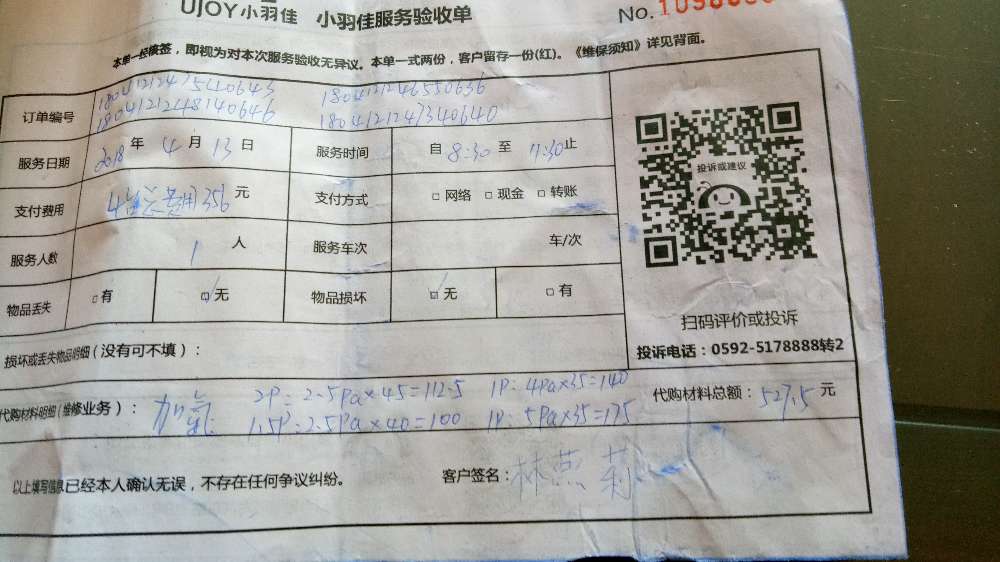 UJOY小羽佳 小羽佳服务验收单
No.
本单一经核签，即视为对本次服务验收无异议。本单一式两份，客户留存一份(红)。《维保须知》详见背面。
订单编号 1804121241540643 1804121246550636
1804121248140646 1804121247340640
服务日期 2018年4月13日 服务时间 自8:30至 止
支付费用 费用356元 支付方式 □网络 □现金 □转账
服务人数 1人 服务车次 车/次
物品丢失 □有 □无 物品损坏 □无 □有
损坏或丢失物品明细(没有可不填)：
代购材料明细(维修业务)： 加氟 2P：2.5Pa×45=112.5 1P：4Pa×35=140
1.5P：2.5Pa×40=100 1P：5Pa×35=175
代购材料总额：527.5元
以上填写信息已经本人确认无误，不存在任何争议纠纷。 客户签名：林燕莉
投诉或建议
扫码评价或投诉
投诉电话：0592-5178888转2